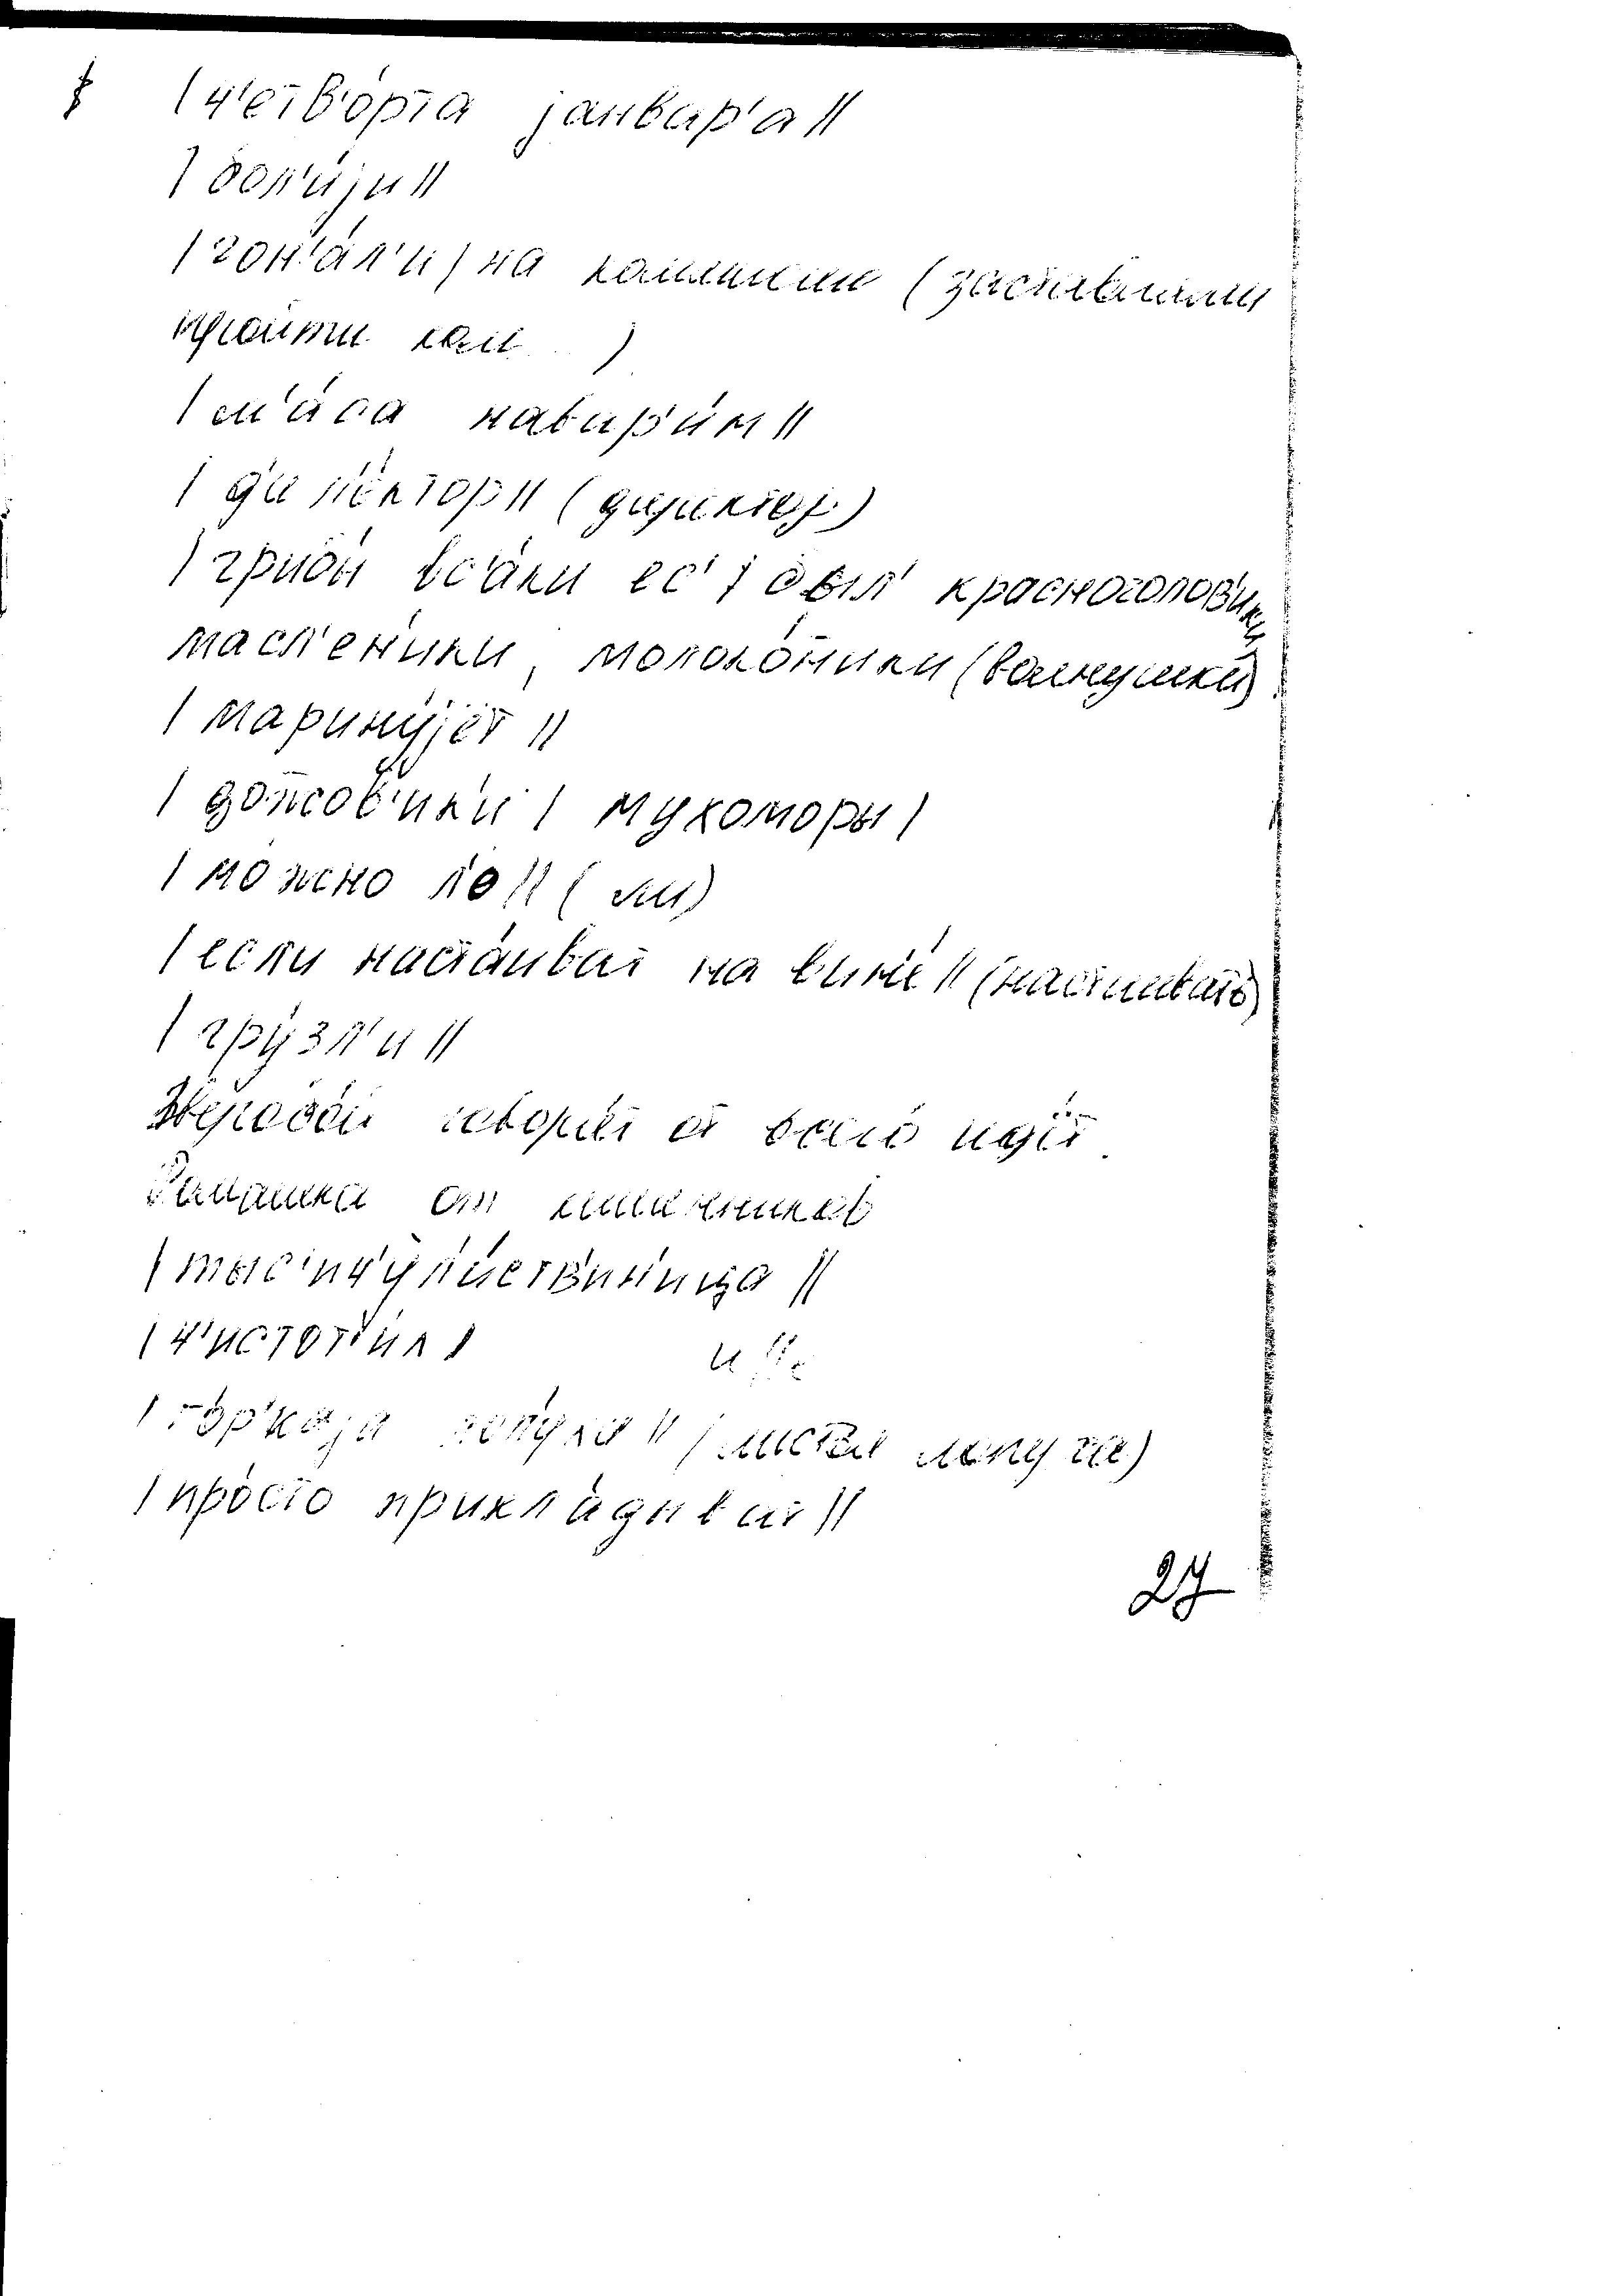 /ч'етв'орта јанвар'а//
/бол'и́ји//
/гон'а́л'и/ на комиссию (заставляли
пройти ком )
/м'а́са навар'и́м//
/д'ил'е́ктор// (директор)
/грибы́ вс'а́ки ес'/ был' красноголо́в'ики
масл'е́н'ики, молоко́н'ики (волнушки)
/марину́јет//
/дожжов'ик'и/ мухоморы/
/можно л'о// (ли)
/если наста́иват на вин'е́// (настаивать)
/гру́зл'и//
Зверобой говорят от всего идёт
Ромашка от
/тыс'ич'ул'и́ств'ин'ица//
/ч'истот'и́л/
/го́р'каја лопуха// (листья лопуха)
/про́сто прикла́дыват//
27